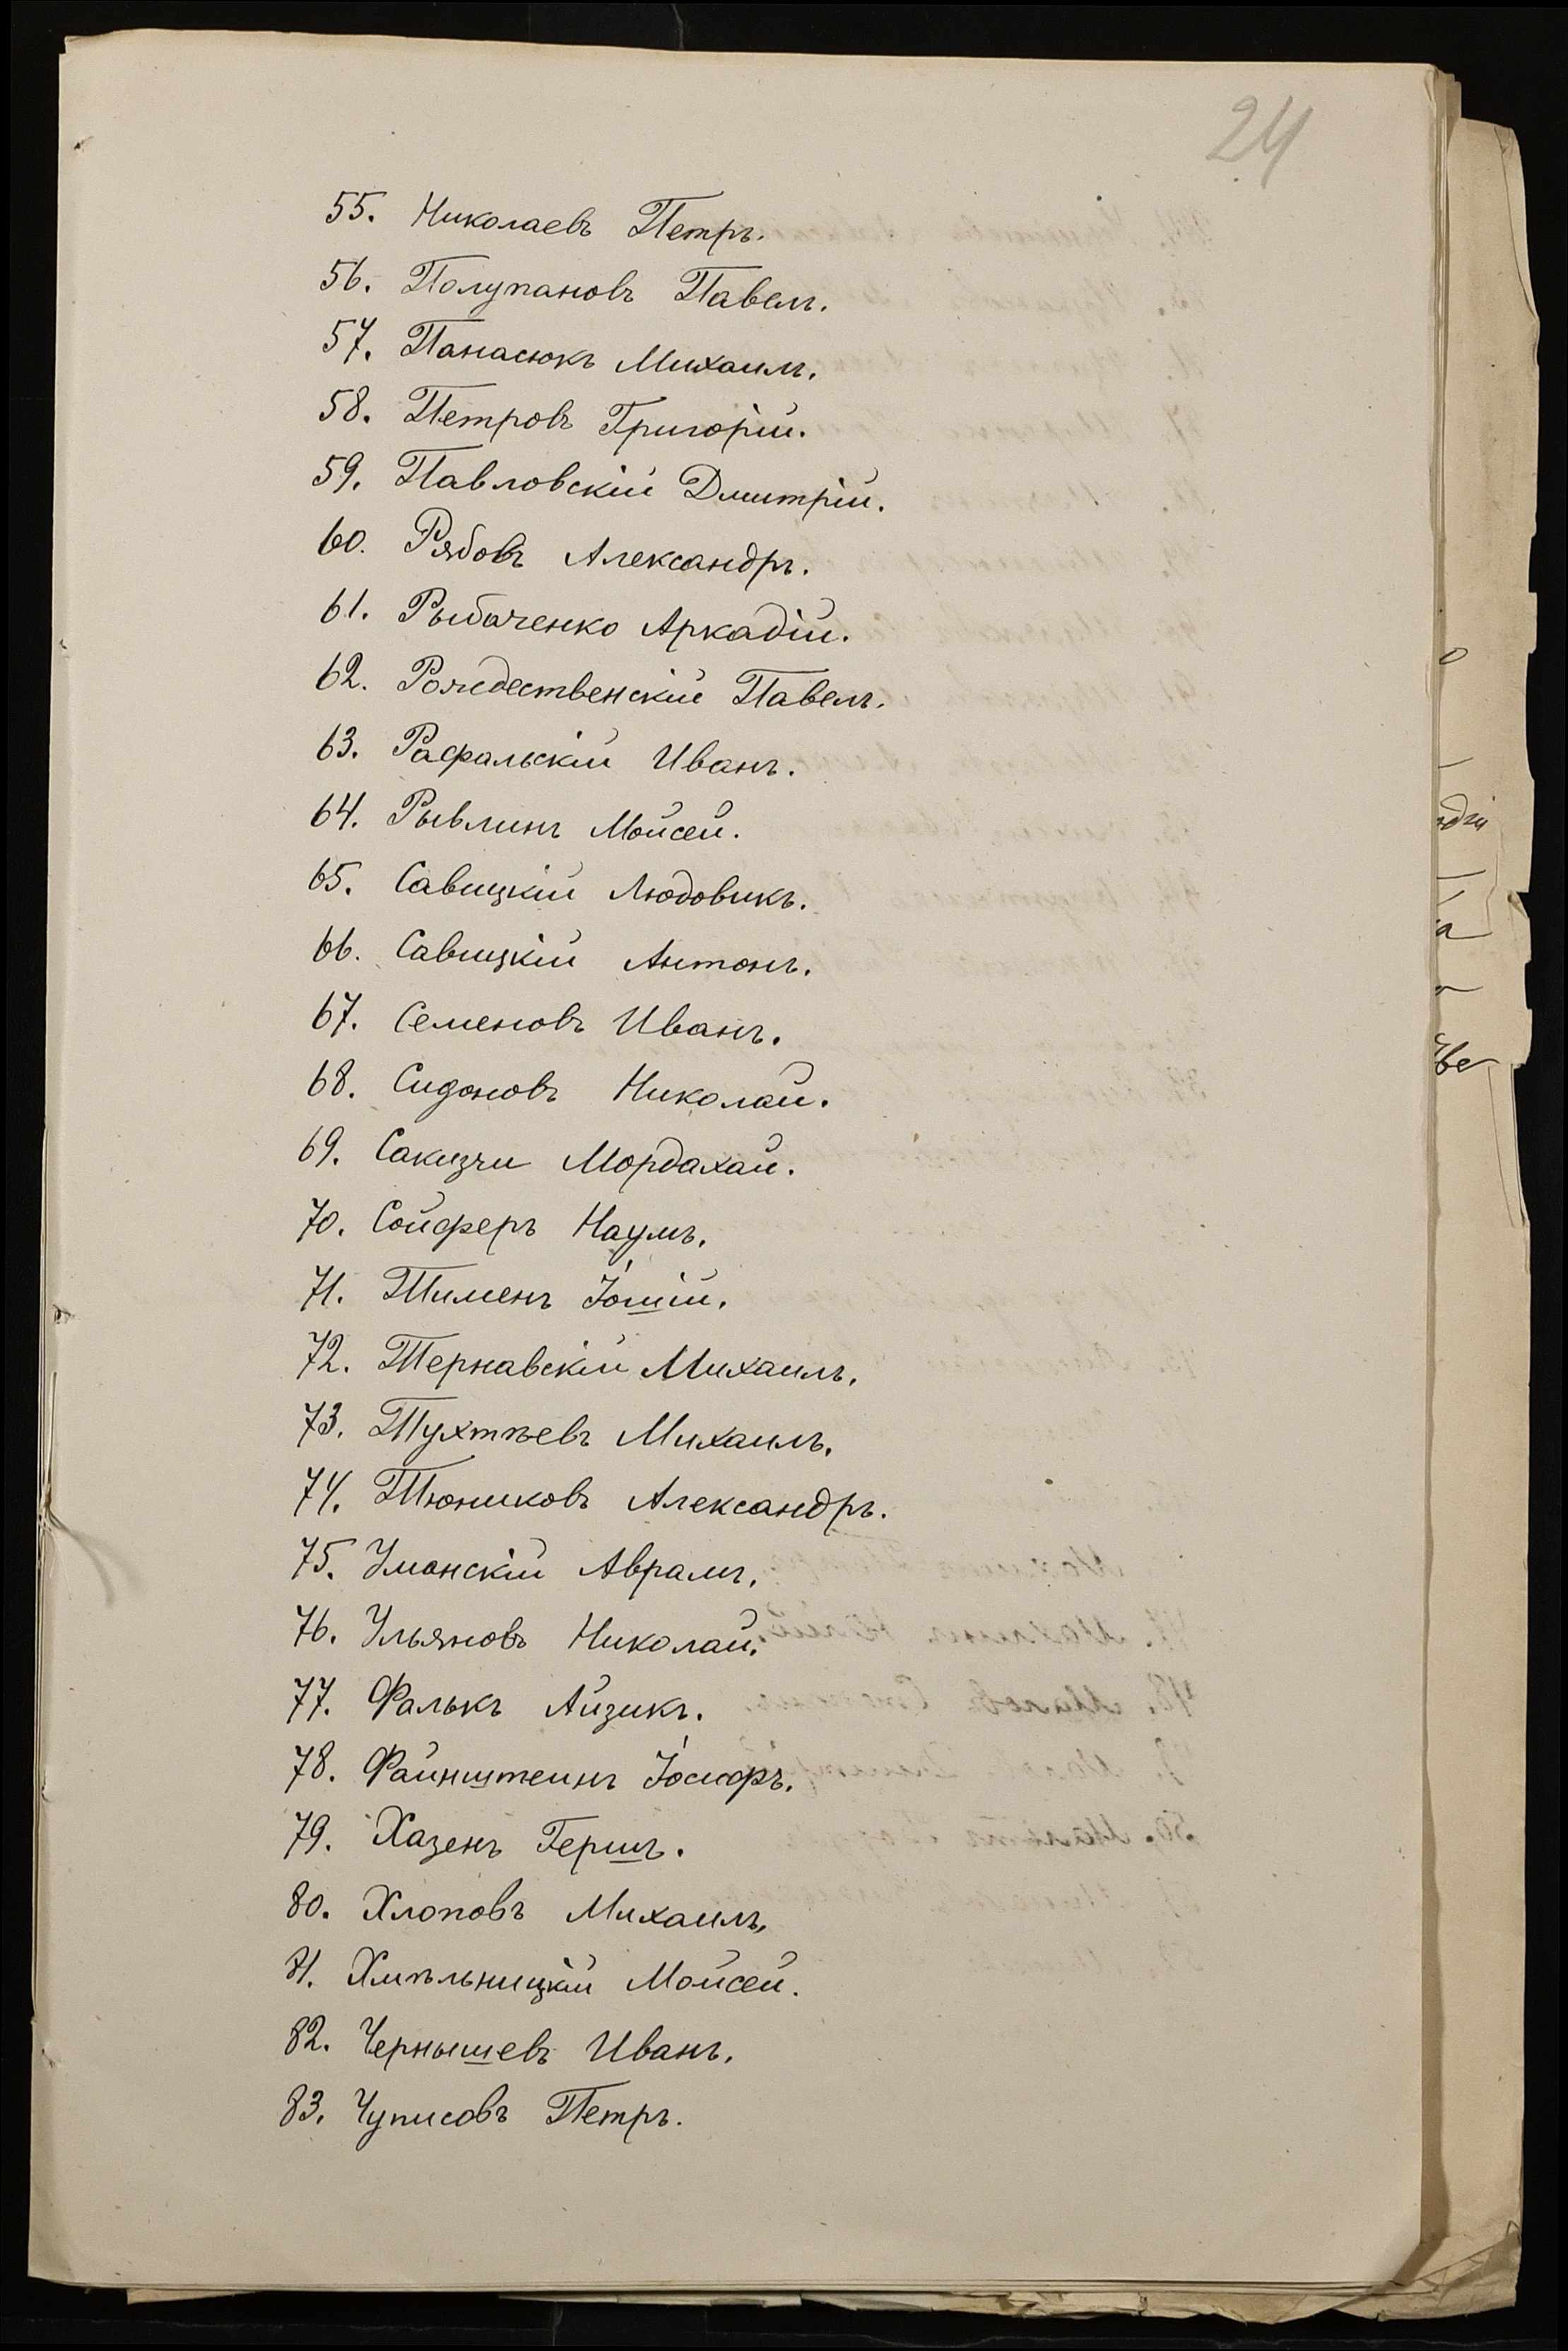 24
55. Николаевъ Петръ.
56. Полупановъ Павелъ.
57. Панасюкъ Михаилъ.
58. Петровъ Григорій.
59. Павловскій Дмитрій.
60. Рябовъ Александръ.
61. Рыбаченко Аркадій.
62. Рождественскій Павелъ.
63. Рафальскій Иванъ.
64. Рывлинъ Мойсей.
65. Савицкій Людовикъ.
66. Савицкій Антонъ.
67. Семеновъ Иванъ.
68. Сидоновъ Николай.
69. Сакизчи Мордахай.
70. Сойферъ Наумъ.
71. Тименъ Іошій.
72. Тернавскій Михаилъ.
73. Тухтѣевъ Михаилъ.
74. Тюниковъ Александръ.
75. Уманскій Аврамъ.
76. Ульяновъ Николай.
77. Фалькъ Айзикъ.
78. Файнштейнъ Іосифъ.
79. Хазенъ Гершъ.
80. Хлоповъ Михаилъ.
81. Хмѣльницкій Мойсей.
82. Чернышевъ Иванъ.
83. Чуписовъ Петръ.